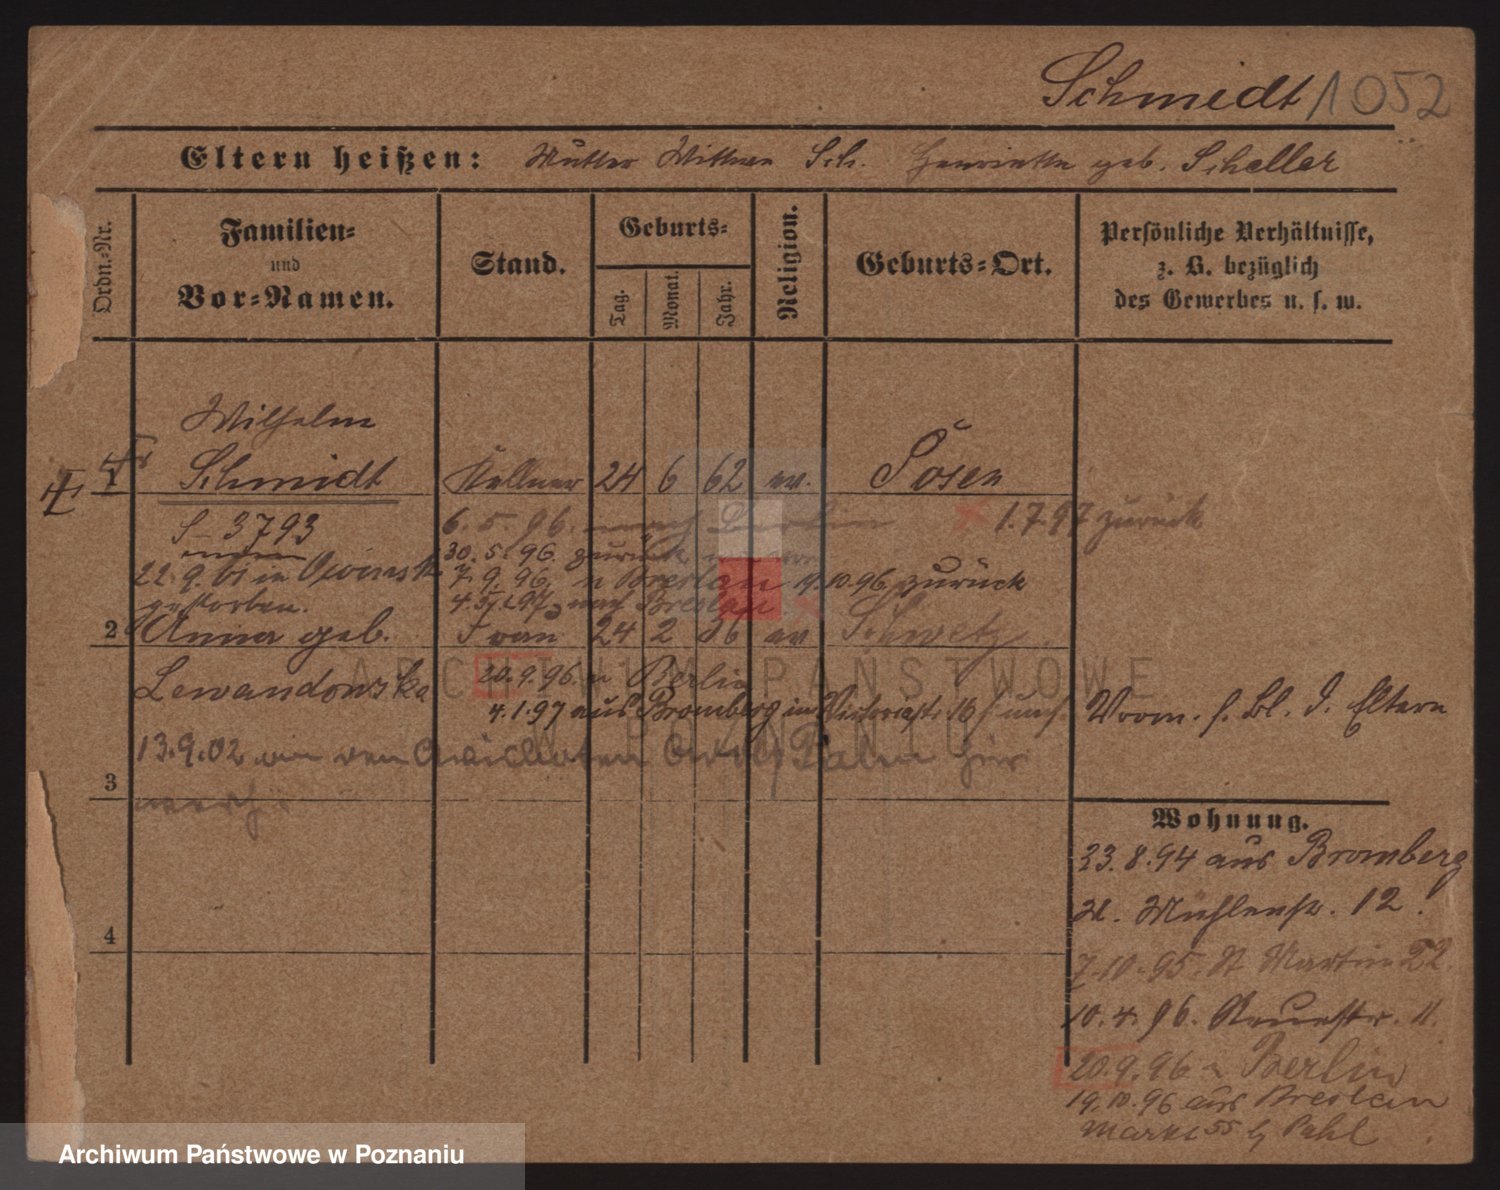 Schmidt / 1052
Eltern heißen: Mutter Wittwe Sch. Henriette geb. Scheller
Ordn.-Nr.
Familien- und Vor-Namen.
Stand.
Geburts-
Tag.
Monat.
Jahr.
Religion.
Geburts-Ort.
Persönliche Verhältnisse,
z. B. bezüglich
des Gewerbes u. s. w.
Wilhelm
1 Schmidt Kellner 24 6 62 ev. Posen
S 3793
6. 5. 96. nach Berlin 1.7.97 zurück
30. 5. 96 zurück
22. 9. in
7. 9. 96. n Breslau 19.10.96 zurück
gestorben.
97 nach Breslau
2 Anna geb. Frau 24 2 ev Schwetz
Lewandowska
20.9.96. n Berlin
4.1.97 aus Bromberg
Vrom. f. Bl. d. Eltern
13.9.02
3
Wohnung.
23. 8. 94 aus Bromberg
Mühlenstr. 12.
4
7.10.95. St Martin 22.
10. 4. 96. Neuestr. 11.
20.9.96 n Berlin
19.10.96 aus Breslau
Markt 55 b Pahl
ARCHIWUM PAŃSTWOWE
W POZNANIU
Archiwum Państwowe w Poznaniu